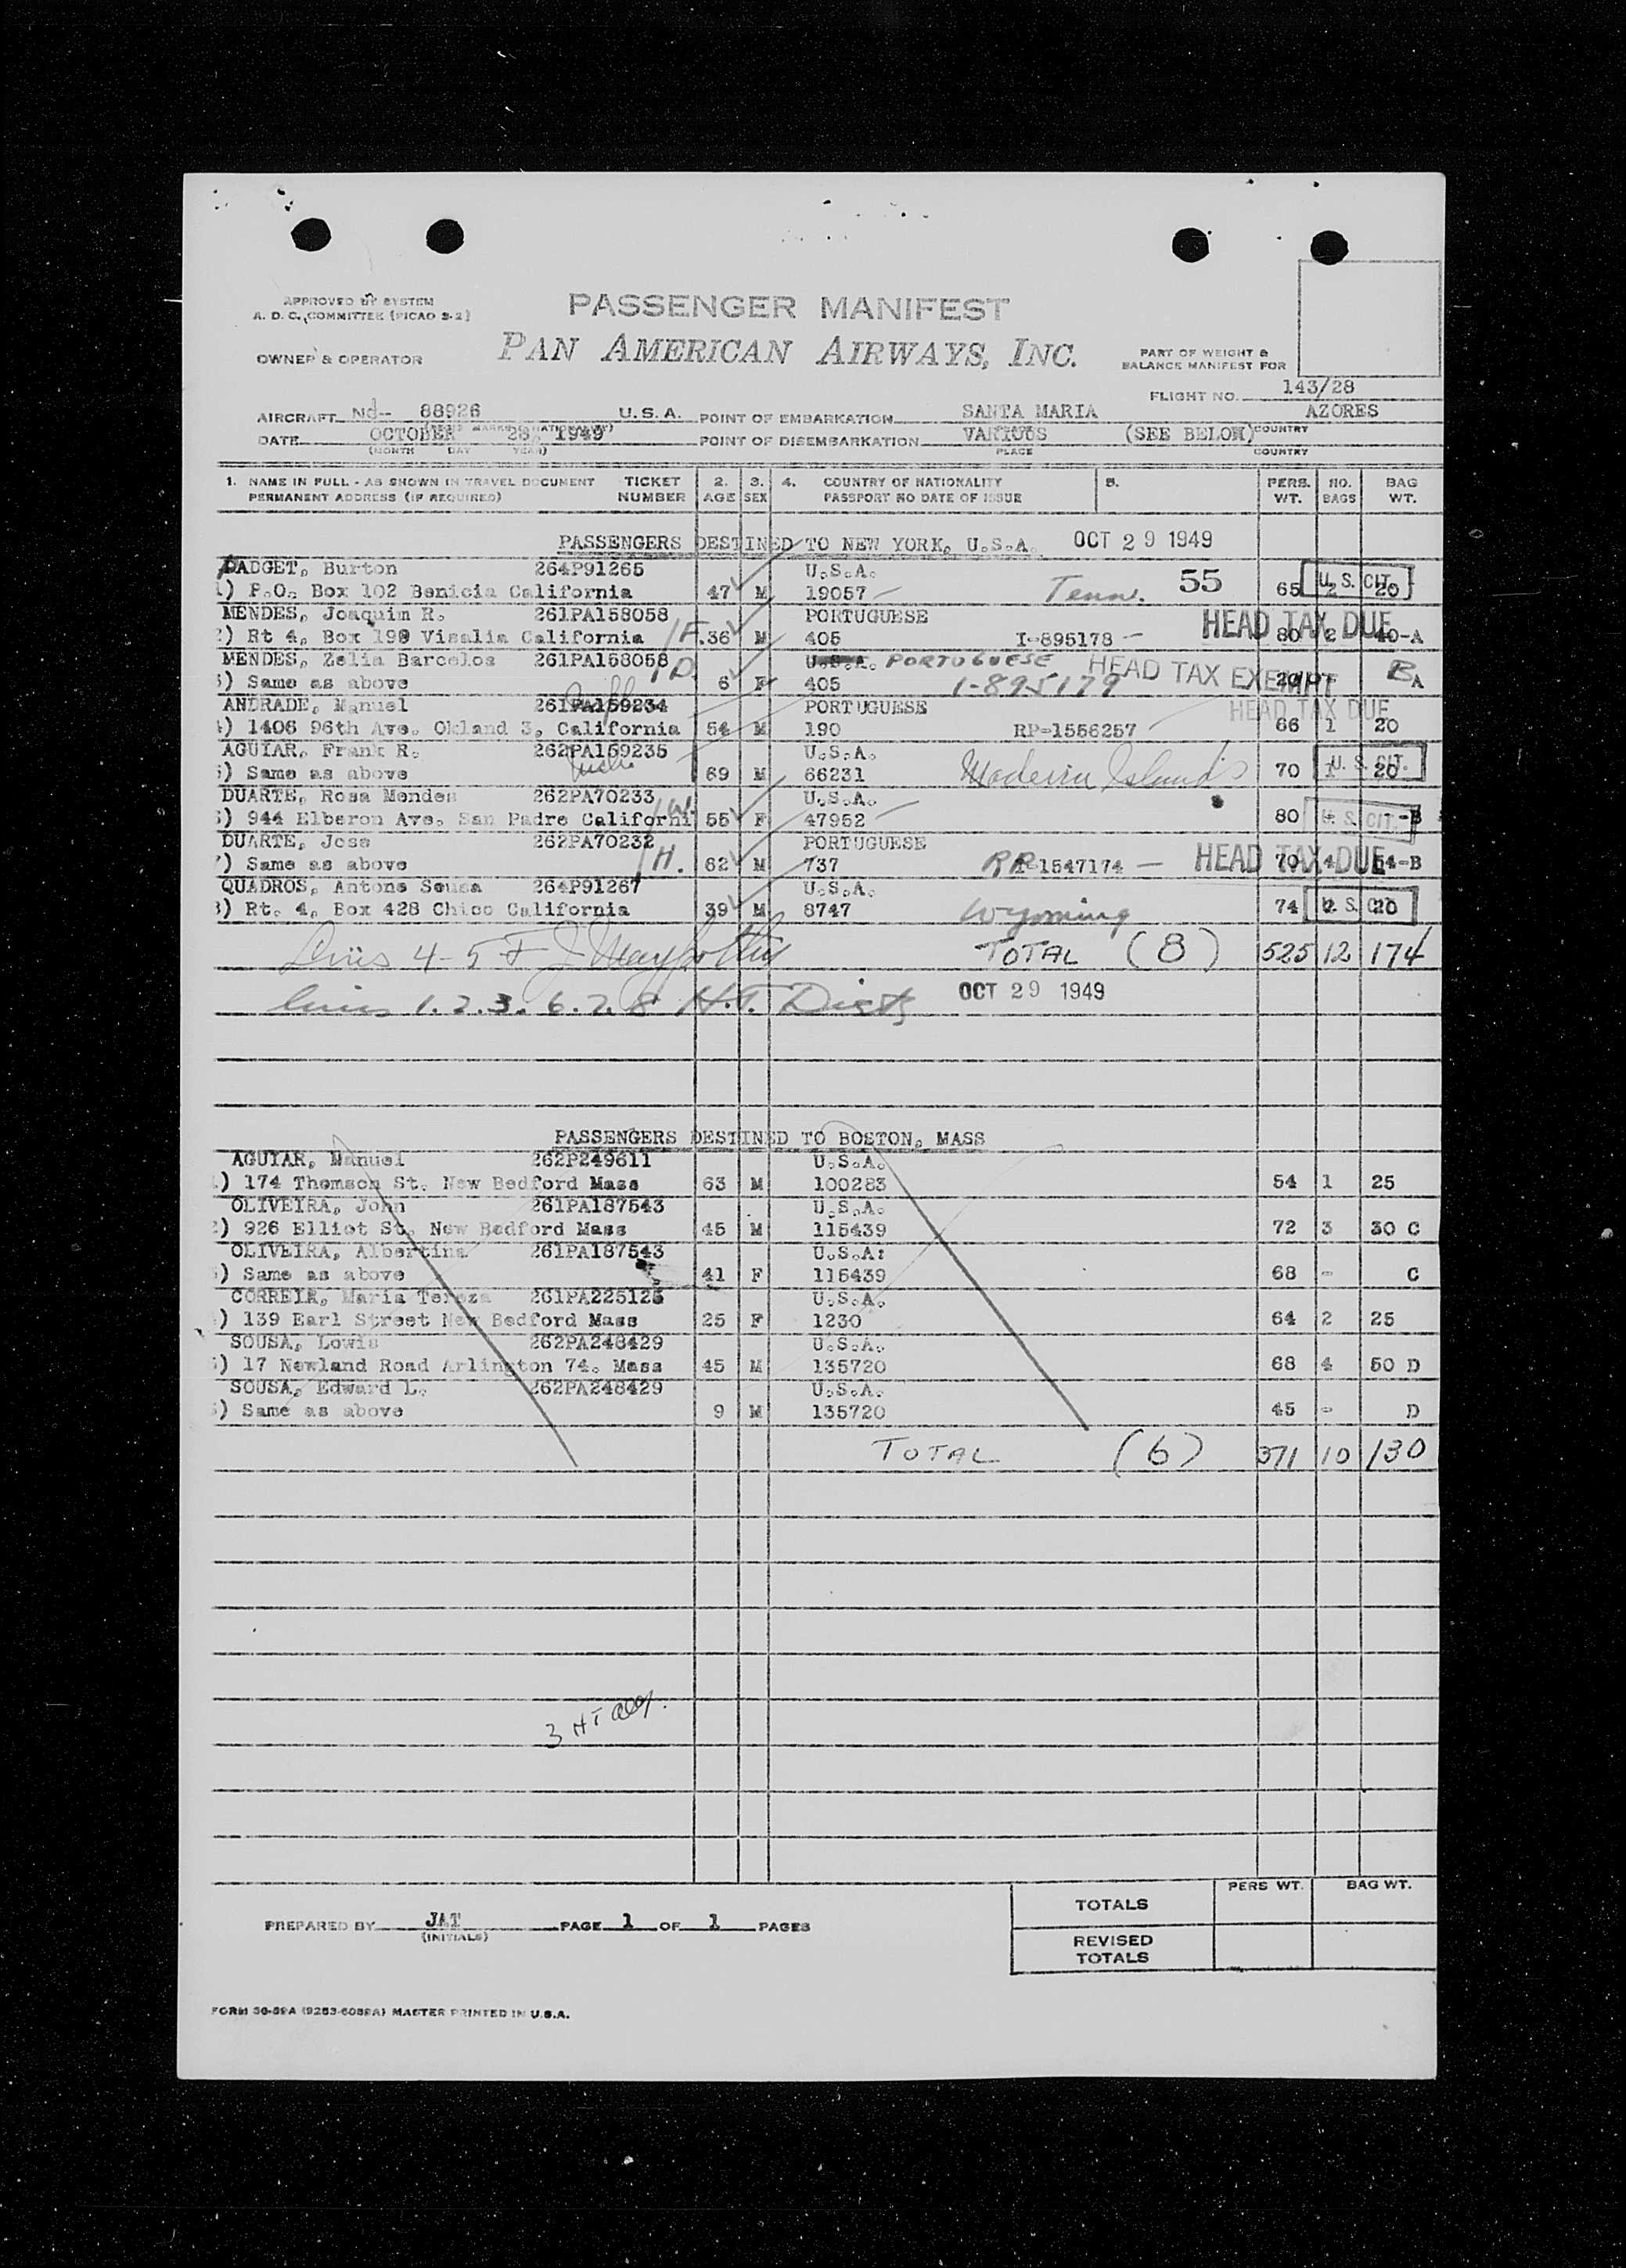 APPROVED BY SYSTEM
A. D. C. COMMITTEE (PICAO 2-2)
PASSENGER MANIFEST
OWNER & OPERATOR
PAN AMERICAN AIRWAYS, INC.
PART OF WEIGHT &
BALANCE MANIFEST FOR
FLIGHT NO. 143/28
AIRCRAFT 88926 U. S. A. POINT OF EMBARKATION SANTA MARIA AZORES
DATE OCTOBER 28, 1949 POINT OF DISEMBARKATION VARIOUS (SEE BELOW) COUNTRY
(MONTH DAY YEAR) PLACE COUNTRY
1. NAME IN FULL - AS SHOWN IN TRAVEL DOCUMENT TICKET 2. 3. 4. COUNTRY OF NATIONALITY 5. PERS. NO. BAG
PERMANENT ADDRESS (IF REQUIRED) NUMBER AGE SEX PASSPORT NO DATE OF ISSUE WT. BAGS WT.
PASSENGERS DESTINED TO NEW YORK, U.S.A. OCT 29 1949
PADGET, Burton 264P91265 U.S.A. 55 U. S. CIT.
1) P.O. Box 102 Benicia California 47 M 19057 Tenn. 65 2 20
MENDES, Joaquim R. 261PA158058 PORTUGUESE HEAD TAX DUE
2) Rt 4, Box 199 Visalia California F. 36 M 405 I-895178 80 2 40-A
MENDES, Zelia Barcelos 261PA158058 D. U.S.A. PORTUGUESE HEAD TAX EXEMPT B
3) Same as above 6 F 405 I-895179 20 A
ANDRADE, Manuel 261PA159234 PORTUGUESE HEAD TAX DUE
4) 1406 96th Ave. Okland 3, California 54 M 190 RP-1556257 66 1 20
AGUIAR, Frank R. 262PA159235 U.S.A. U. S. CIT.
5) Same as above 69 M 66231 Maderia Islands 70 1 20
DUARTE, Rosa Mendes 262PA70233 W. U.S.A. U. S. CIT.
6) 944 Elberon Ave. San Padre Californi 55 F 47952 80 -B
DUARTE, Jose 262PA70232 H. PORTUGUESE HEAD TAX DUE
7) Same as above 62 M 737 RP-1547174 70 4 54-B
QUADROS, Antone Sousa 264P91267 U.S.A. U. S. CIT.
8) Rt. 4, Box 428 Chico California 39 M 8747 Wyoming 74 2 20
Lines 4-5 TOTAL (8) 525 12 174
lines 1. 2. 3. 6. 7. 8 H.T. OCT 29 1949
PASSENGERS DESTINED TO BOSTON, MASS
AGUIAR, Manuel 262P249611 U.S.A.
1) 174 Thomson St. New Bedford Mass 63 M 100283 54 1 25
OLIVEIRA, John 261PA187543 U.S.A.
2) 926 Elliot St, New Bedford Mass 45 M 115439 72 3 30 C
OLIVEIRA, Albertina 261PA187543 U.S.A:
3) Same as above 41 F 115439 68 - C
CORREIA, Maria Tereza 261PA225125 U.S.A.
4) 139 Earl Street New Bedford Mass 25 F 1230 64 2 25
SOUSA, Lowis 262PA248429 U.S.A.
5) 17 Newland Road Arlington 74. Mass 45 M 135720 68 4 50 D
SOUSA, Edward L. 262PA248429 U.S.A.
6) Same as above 9 M 135720 45 - D
TOTAL (6) 371 10 130
3 HT
PERS WT. BAG WT.
TOTALS
PREPARED BY JAT PAGE 1 OF 1 PAGES
(INITIALS)
REVISED
TOTALS
FORM 36-59A (9253-608RA) MASTER PRINTED IN U.S.A.